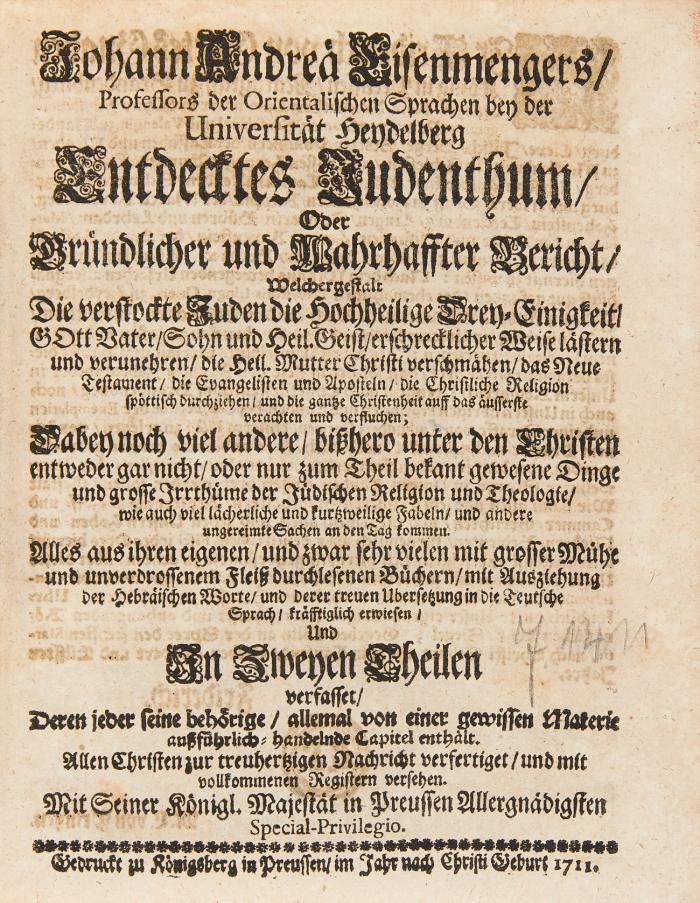 Johann Andreä Eisenmengers/
Professors der Orientalischen Sprachen bey der
Universität Heydelberg
Entdecktes Judenthum/
Oder
Gründlicher und Wahrhaffter Bericht/
Welchergestalt
Die verstockte Juden die Hochheilige Drey-Einigkeit/
GOtt Vater/Sohn und Heil. Geist/erschrecklicher Weise lästern
und verunehren/die Heil. Mutter Christi verschmähen/das Neue
Testament/die Evangelisten und Aposteln/die Christliche Religion
spöttisch durchziehen/und die gantze Christenheit auff das äusserste
verachten und verfluchen;
Dabey noch viel andere/bißhero unter den Christen
entweder gar nicht/oder nur zum Theil bekant gewesene Dinge
und grosse Irrthüme der Jüdischen Religion und Theologie/
wie auch viel lächerliche und kurtzweilige Fabeln/und andere
ungereimte Sachen an den Tag kommen.
Alles aus ihren eigenen/und zwar sehr vielen mit grosser Mühe
und unverdrossenem Fleiß durchlesenen Büchern/mit Ausziehung
der Hebräischen Worte/und derer treuen Ubersetzung in die Teutsche
Sprach/kräfftiglich erwiesen/
Und
In Zweyen Theilen
verfasset/
Deren jeder seine behörige/allemal von einer gewissen Materie
außführlich-handelnde Capitel enthält.
Allen Christen zur treuhertzigen Nachricht verfertiget/und mit
vollkommenen Registern versehen.
Mit Seiner Königl. Majestät in Preussen Allergnädigsten
Special-Privilegio.
Gedruckt zu Königsberg in Preussen/im Jahr nach Christi Geburt 1711.